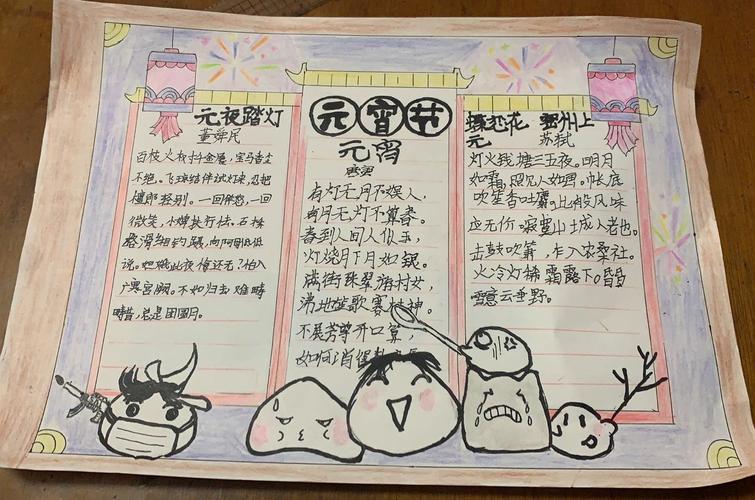 元夜踏灯
董舜民
百枝火树千金屧，宝马香尘
不绝。飞琼结伴试灯来，忍把
檀郎轻别。一回佯怒，一回
微笑，小婢扶行怯。石桥
路滑缃钩蹑，向阿母低低
说。姮娥此夜悔还无？怕入
广寒宫阙。不如归去难畴
畴昔，总是团圆月。
元宵节
元宵
唐寅
有灯无月不娱人，
有月无灯不算春。
春到人间人似玉，
灯烧月下月如银。
满街珠翠游村女，
沸地笙歌赛社神。
不展芳尊开口笑，
如何消得
蝶恋花 密州上
元 苏轼
灯火钱塘三五夜。明月
如霜，照见人如画。帐底
吹笙香吐麝。此般风味
应无价。寂寞山城人老也。
击鼓吹箫，乍入农桑社。
火冷灯稀霜露下。昏昏
雪意云垂野。